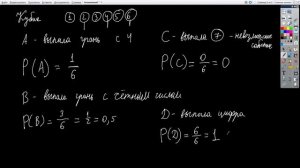 Кубик 1 2 3 4 5 6
A - выпала грань с 4
P(A) = 1/6
B - выпала грань с чётным числом
P(B) = 3/6 = 1/2 = 0,5
C - выпала 7 - невозможное событие
P(C) = 0/6 = 0
D - выпала цифра
P(D) = 6/6 = 1